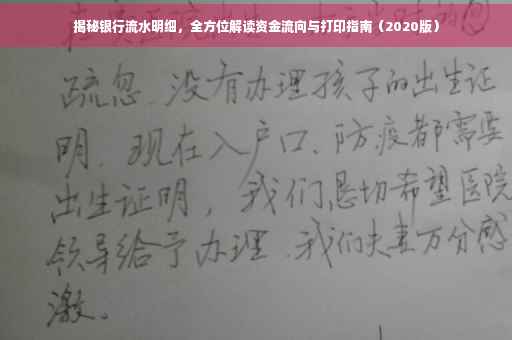 揭秘银行流水明细，全方位解读资金流向与打印指南（2020版）
疏忽、没有办理孩子的出生证
明、现在入户口、防疫都需要
出生证明，我们恳切希望医院
领导给予办理、我们夫妻万分感
激。